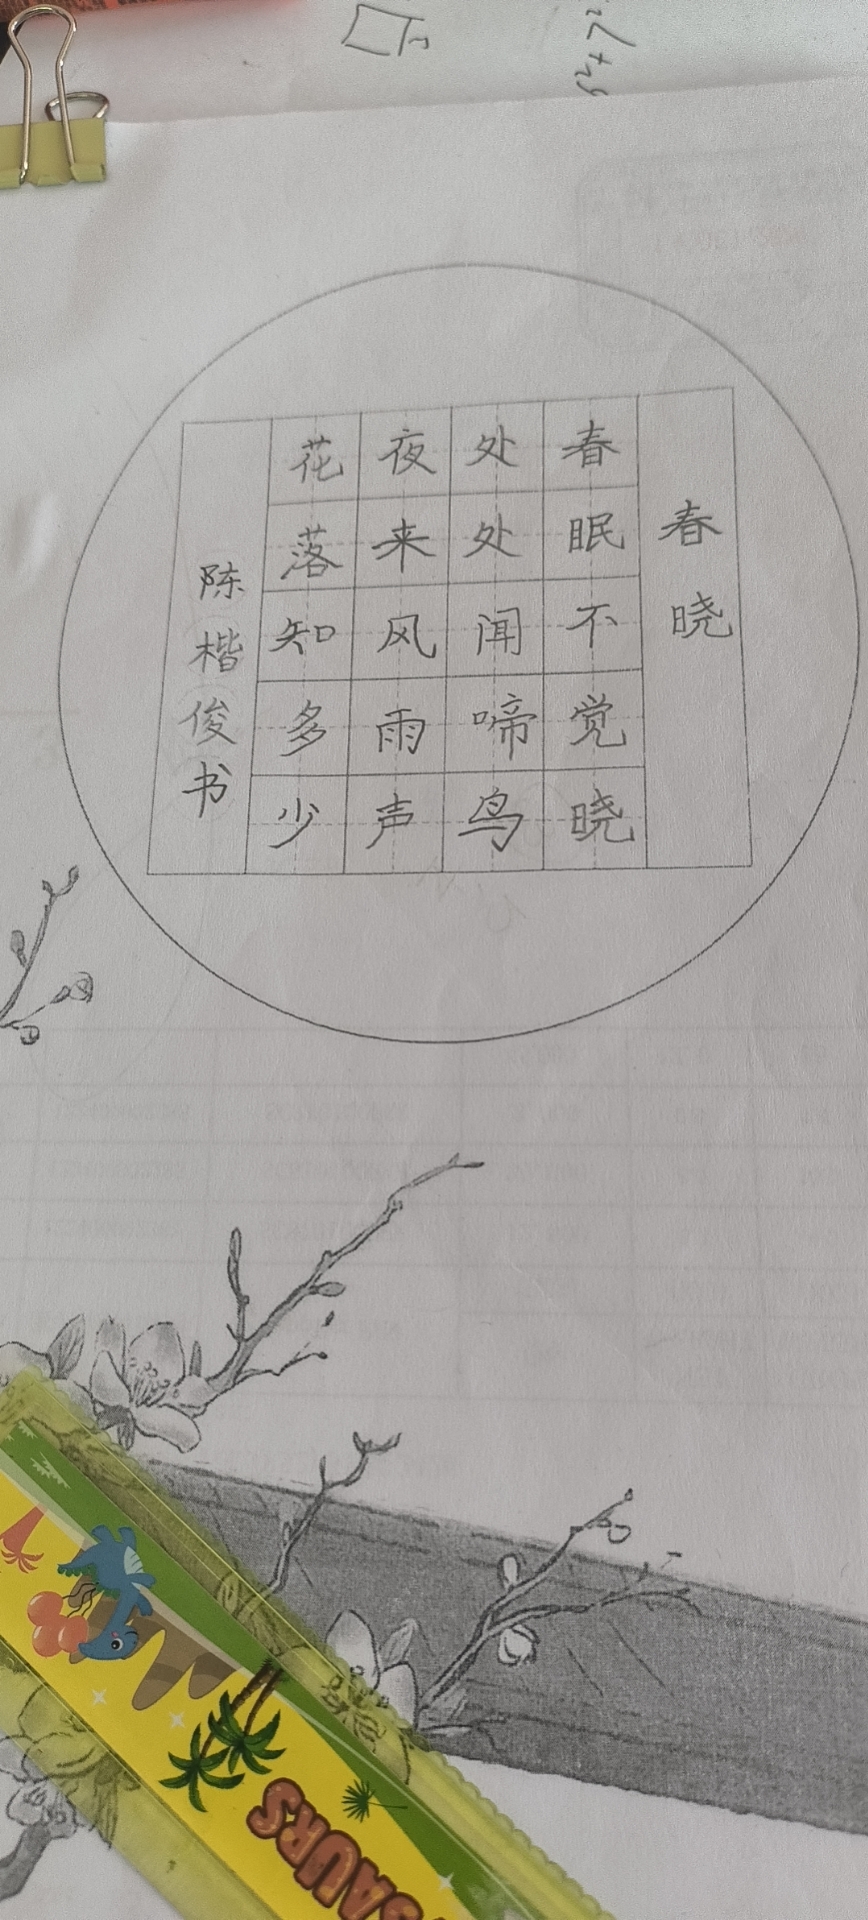 春晓
春眠不觉晓
处处闻啼鸟
夜来风雨声
花落知多少
陈楷俊书
SAURS